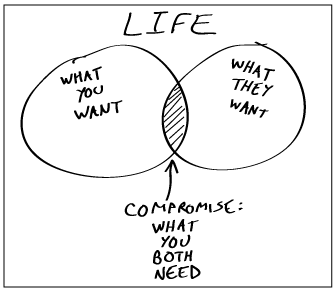 LIFE
WHAT
YOU
WANT
WHAT
THEY
WANT
COMPROMISE:
WHAT
YOU
BOTH
NEED